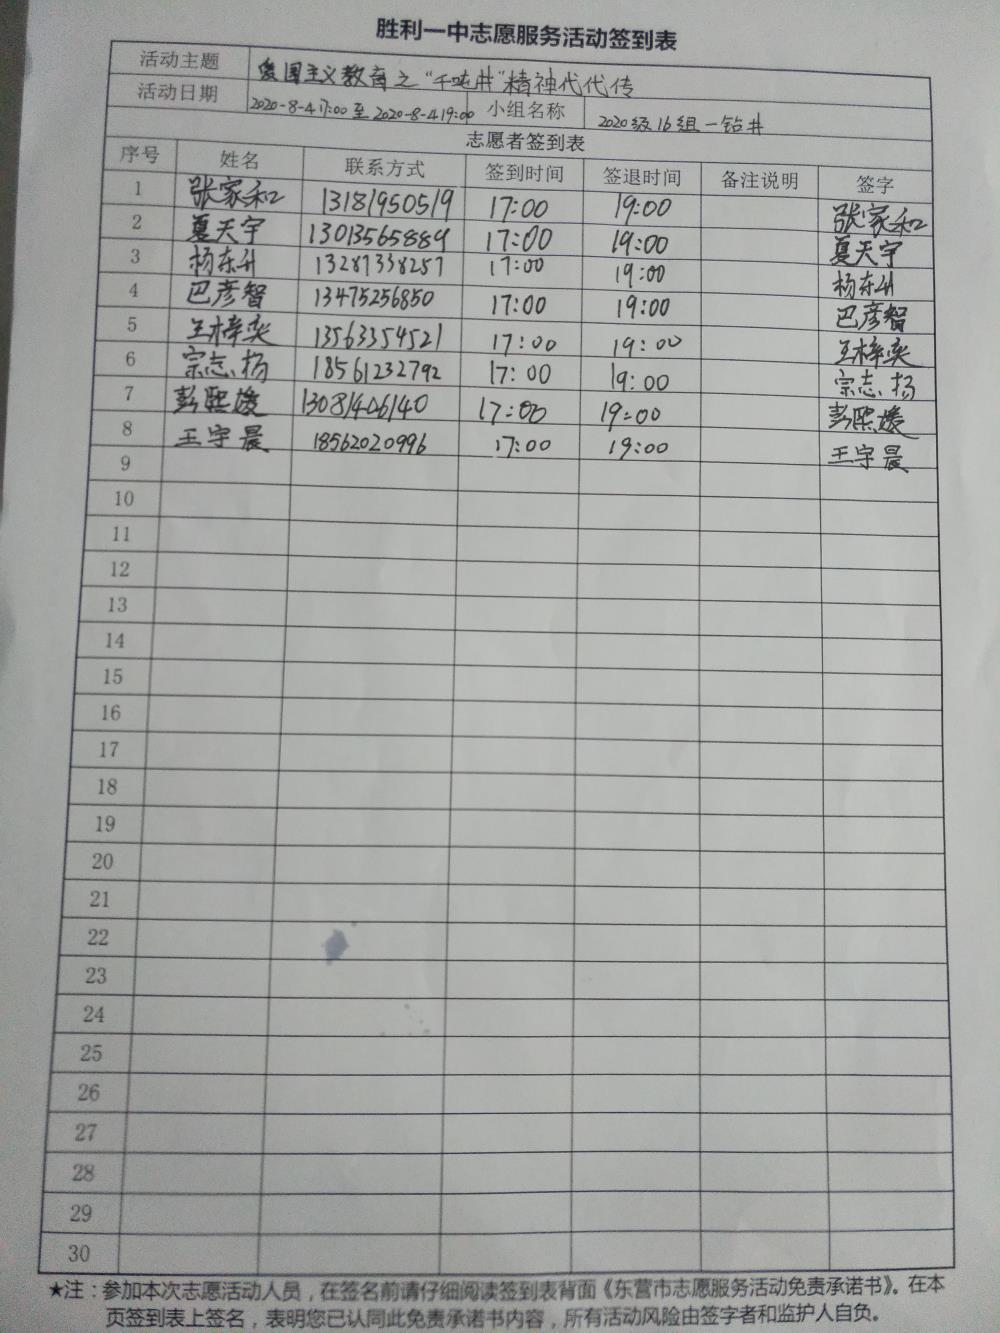 胜利一中志愿服务活动签到表
活动主题 爱国主义教育之“千吨井”精神代代传
活动日期 2020-8-4 17:00 至 2020-8-4 19:00 小组名称 2020级16组一钻井
志愿者签到表
序号 姓名 联系方式 签到时间 签退时间 备注说明 签字
1 张家和 13181950519 17:00 19:00 张家和
2 夏天宇 13013565889 17:00 19:00 夏天宇
3 杨东升 13287338257 17:00 19:00 杨东升
4 巴彦智 13475256850 17:00 19:00 巴彦智
5 王梓奕 13563354521 17:00 19:00 王梓奕
6 宗志扬 18561232792 17:00 19:00 宗志扬
7 彭熙媛 13081406140 17:00 19:00 彭熙媛
8 王宇晨 18562020996 17:00 19:00 王宇晨
9
10
11
12
13
14
15
16
17
18
19
20
21
22
23
24
25
26
27
28
29
30
★注：参加本次志愿活动人员，在签名前请仔细阅读签到表背面《东营市志愿服务活动免责承诺书》。在本
页签到表上签名，表明您已认同此免责承诺书内容，所有活动风险由签字者和监护人自负。